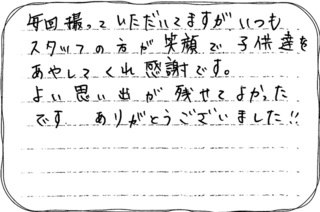 毎回撮っていただいてますが いつも
スタッフの方が笑顔で 子供達を
あやしてくれ感謝です。
よい思い出が残せてよかった
です ありがとうございました!!